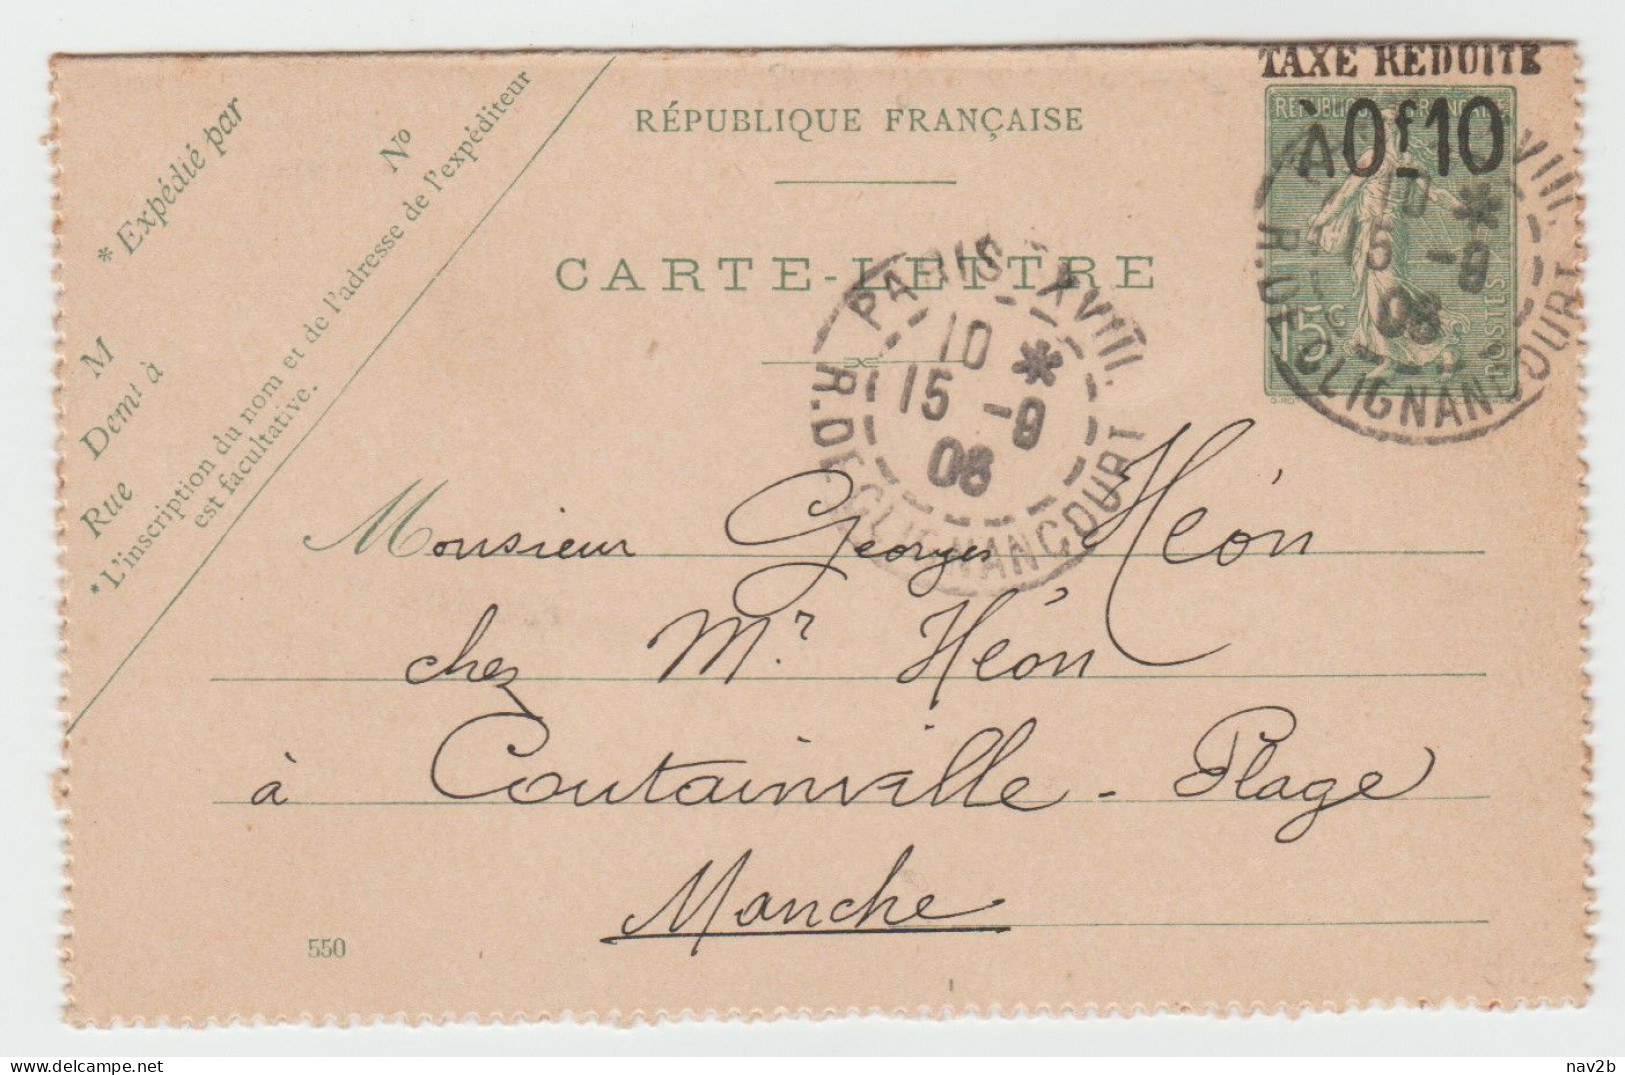 TAXE REDUITE
à 0f10
RÉPUBLIQUE FRANÇAISE
15c
POSTES
* Expédié par
No
M
Demt à
Rue
* L'inscription du nom et de l'adresse de l'expéditeur
est facultative.
RÉPUBLIQUE FRANÇAISE
CARTE-LETTRE
PARIS XVIII.
10 *
15 -9
06
R. DE CLIGNANCOURT
XVIII.
10 *
15 -9
06
R. DE CLIGNANCOURT
Monsieur Georges Héon
chez Mr. Héon
à Coutainville - Plage
Manche
550
nav2b